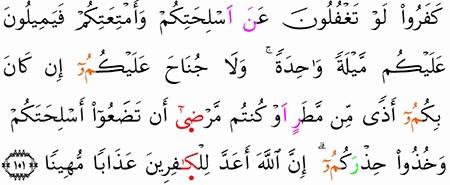 كَفَرُوا۟ لَوْ تَغْفُلُونَ عَنَ اَسْلِحَتِكُمْ وَأَمْتِعَتِكُمْ فَيَمِيلُونَ
عَلَيْكُم مَّيْلَةً وَٰحِدَةً ۚ وَلَا جُنَاحَ عَلَيْكُمُۥٓ إِن كَانَ
بِكُمُۥٓ أَذًى مِّن مَّطَرٍ اَوْ كُنتُم مَّرْضٜىٰٓ أَن تَضَعُوٓا۟ أَسْلِحَتَكُمْ
وَخُذُوا۟ حِذْرَكُمُۥٓ ۗ إِنَّ ٱللَّهَ أَعَدَّ لِلْكٰٜفِرِينَ عَذَابًا مُّهِينًا ١٠١